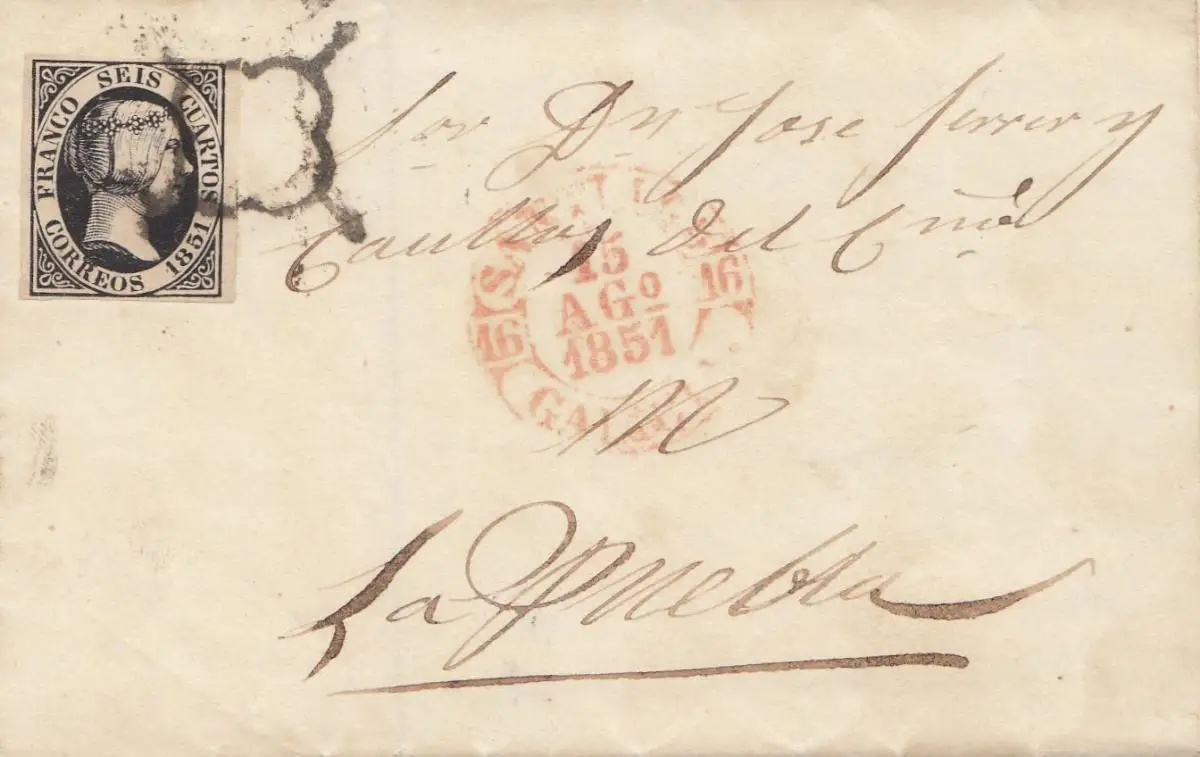 FRANCO SEIS CUARTOS
CORREOS 1851
Sor Dn Jose Ferrer y
del
16 15 16
AGo
1851
M
La Puebla